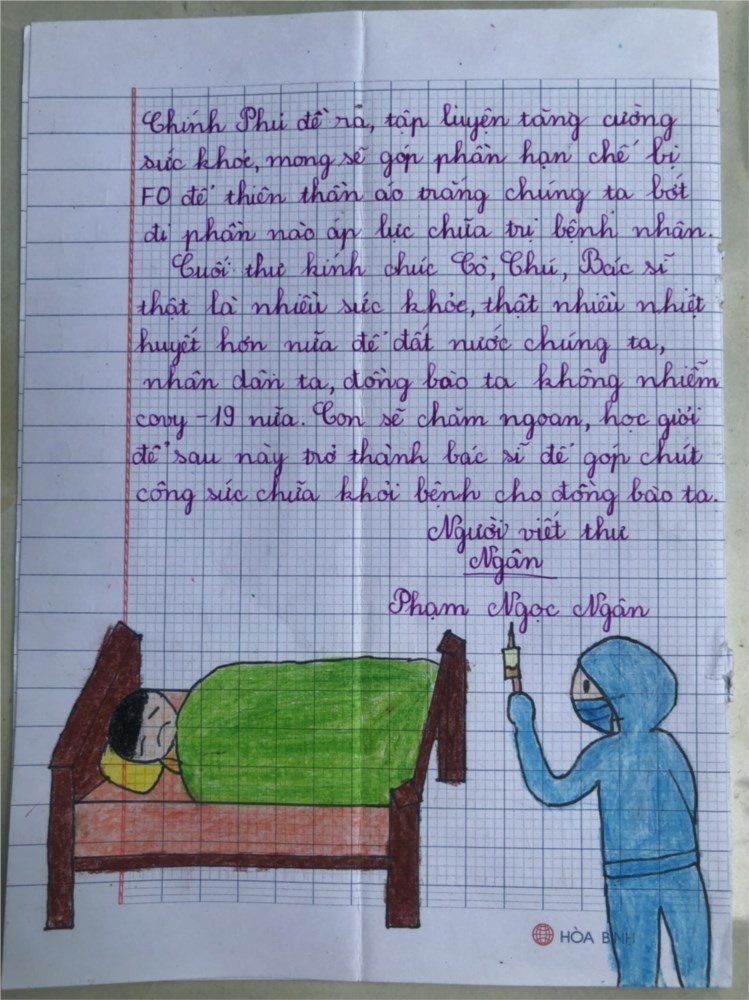 Chính Phủ đề ra, tập luyện tăng cường
sức khỏe, mong sẽ góp phần hạn chế bị
F0 để thiên thần áo trắng chúng ta bớt
đi phần nào áp lực chữa trị bệnh nhân.
Cuối thư kính chúc Cô, Chú, Bác sĩ
thật là nhiều sức khỏe, thật nhiều nhiệt
huyết hơn nữa để đất nước chúng ta,
nhân dân ta, đồng bào ta không nhiễm
covy-19 nữa. Con sẽ chăm ngoan, học giỏi
để sau này trở thành bác sĩ để góp chút
công sức chữa khỏi bệnh cho đồng bào ta.
Người viết thư
Ngân
Phạm Ngọc Ngân
HÒA BÌNH